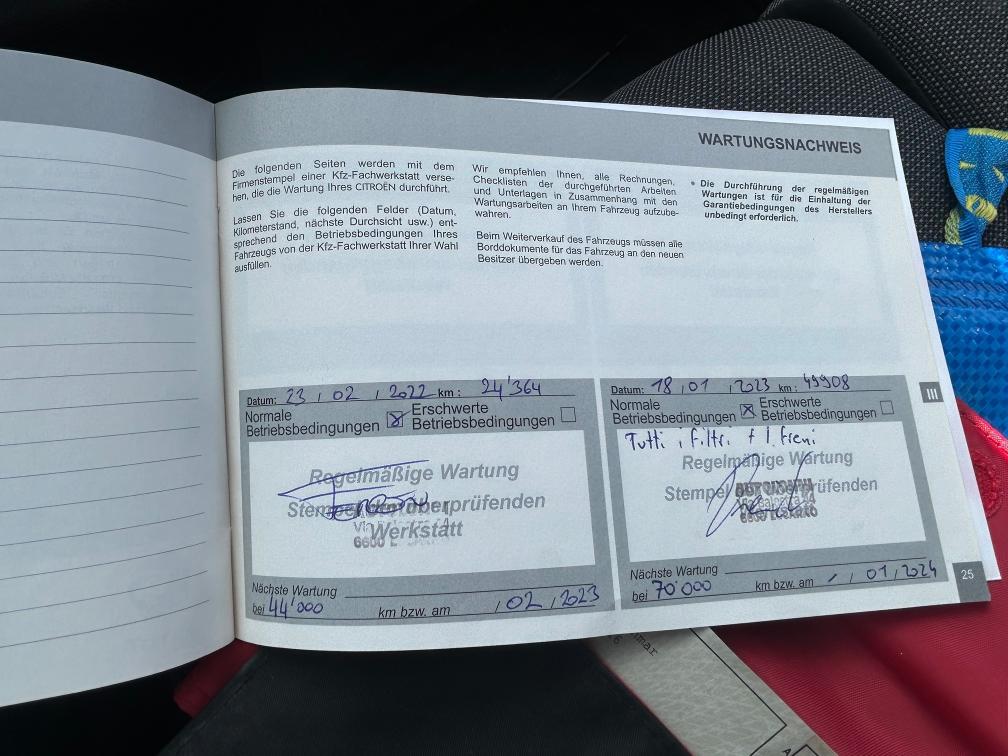 WARTUNGSNACHWEIS
Die folgenden Seiten werden mit dem
Firmenstempel einer Kfz-Fachwerkstatt verse-
hen, die die Wartung Ihres CITROËN durchführt.
Lassen Sie die folgenden Felder (Datum,
Kilometerstand, nächste Durchsicht usw.) ent-
sprechend den Betriebsbedingungen Ihres
Fahrzeugs von der Kfz-Fachwerkstatt Ihrer Wahl
ausfüllen.
Wir empfehlen Ihnen, alle Rechnungen,
Checklisten der durchgeführten Arbeiten
und Unterlagen in Zusammenhang mit den
Wartungsarbeiten an Ihrem Fahrzeug aufzube-
wahren.
Beim Weiterverkauf des Fahrzeugs müssen alle
Borddokumente für das Fahrzeug an den neuen
Besitzer übergeben werden.
• Die Durchführung der regelmäßigen
Wartungen ist für die Einhaltung der
Garantiebedingungen des Herstellers
unbedingt erforderlich.
Datum: 23 / 02 / 2022 km: 24'364
Normale
Betriebsbedingungen
Erschwerte
Betriebsbedingungen
Regelmäßige Wartung
überprüfenden
Werkstatt
6600
Nächste Wartung
bei 44'000 km bzw. am / 02 / 2023
Datum: 18 / 01 / 2023 km: 49908
Normale
Betriebsbedingungen
Erschwerte
Betriebsbedingungen
Tutti i filtri + l. freni
Regelmäßige Wartung
Stempel überprüfenden
Nächste Wartung
bei 70'000 km bzw. am / / 01 / 2024
III
25